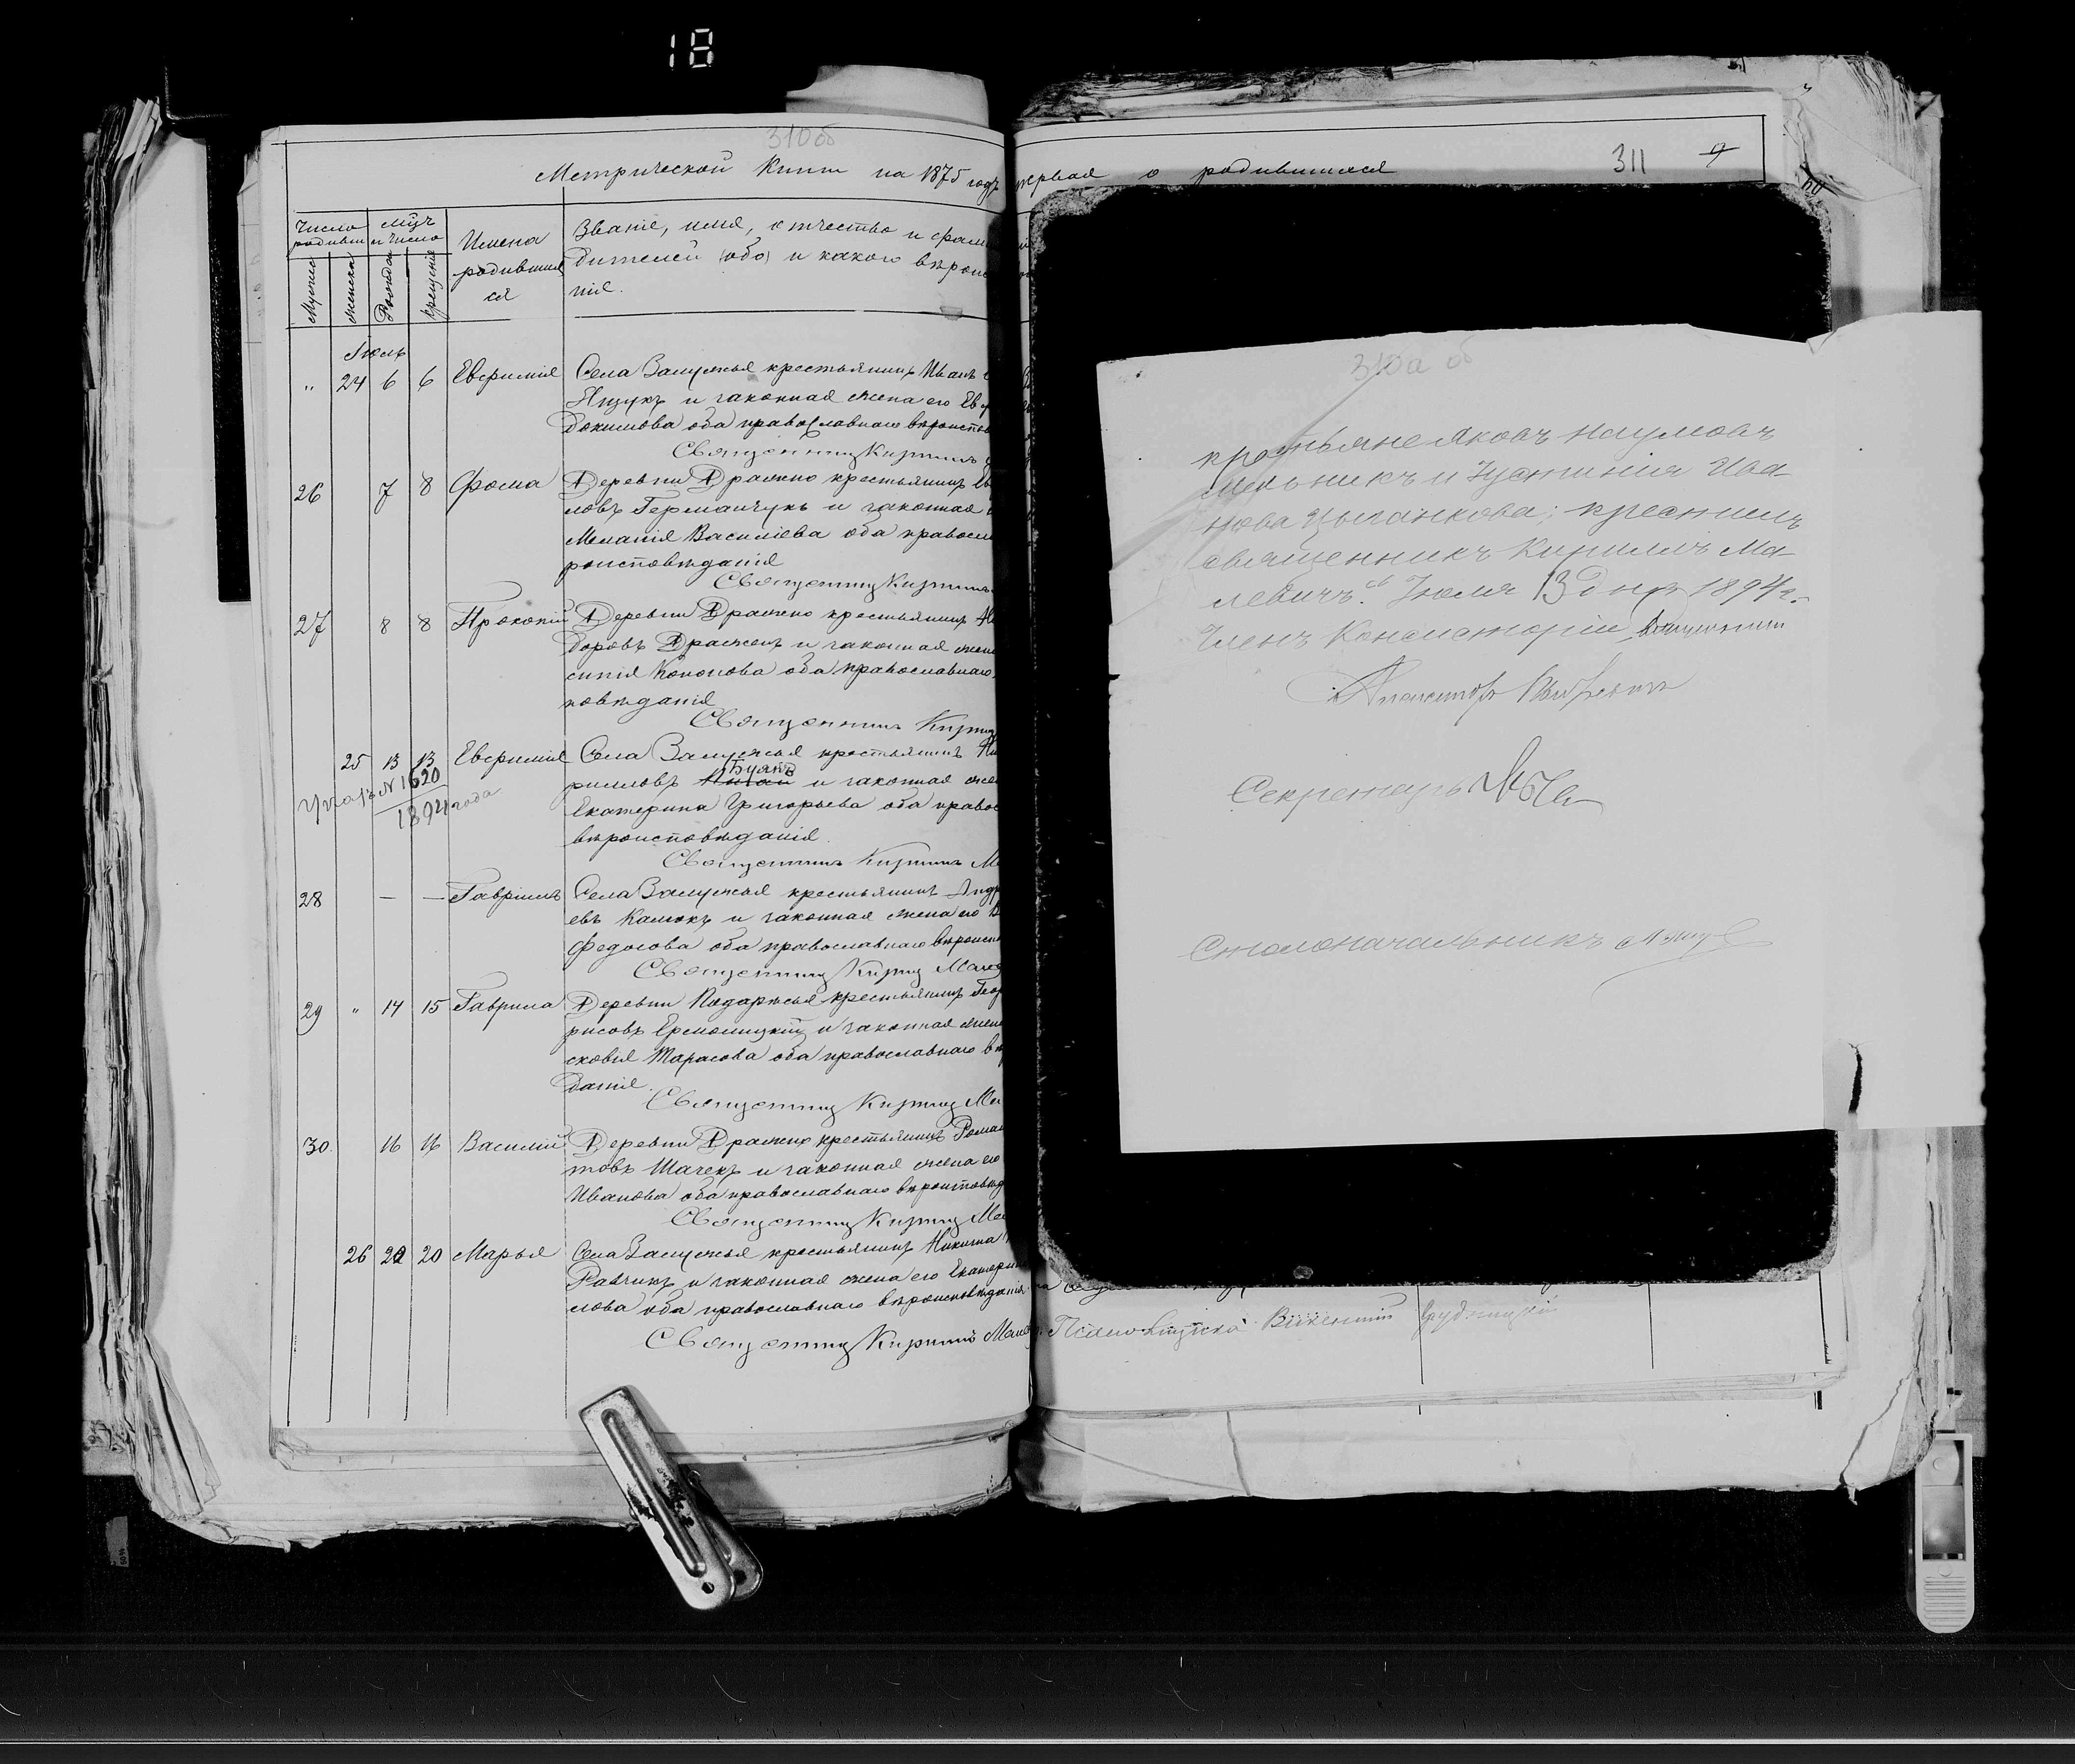 18
310 об
Метрической Книги на 1875 годъ
первая о родившихся 311 9
Число родивш
мѣс. и число
Мужска
Женска
Рожде
Крещенія
Имена родивших ся
Званіе, имя, отчество и фами
дителей (обо) и какого вѣроис
нія.
Іюль
" 24 6 6 Евфимія Села Залужья крестьянинъ Иванъ
Ящукъ и законная жена его Ев
докимова оба православнаго вѣроиспов
Священникъ Кириллъ
26 7 8 Фома Деревни Дражно крестьянинъ
ловъ Германчукъ и законная
Меланія Василіева оба правосл
роисповѣданія
Священникъ Кириллъ
27 8 8 Прокопій Деревни Дражно крестьянинъ
доровъ Драженъ и законная жен
синія Кононова оба православнаго
повѣданія
Священникъ Кирил
25 13 13 Евфимія Села Залужья крестьянинъ
Указъ N 1620
1894 года
Буянъ
рилловъ и законная жен
Екатерина Григорьева оба правос
вѣроисповѣданія.
Священникъ Кириллъ М
28 — — Гавріилъ Села Залужья крестьянинъ Андр
евъ Калюкъ и законная жена его
Федосова оба православнаго вѣроисп
Священникъ Кирилъ Мале
29 " 14 15 Гаврила Деревни Подаржья крестьянинъ Геор
рисовъ Ермолицкій и законная жен
сковія Тарасова оба православнаго вѣ
данія.
Священникъ Кирилъ Ма
30 16 16 Василій Деревни Дражно крестьянинъ Роман
товъ Шачекъ и законная жена его
Иванова оба православнаго вѣроисповѣд
Священникъ Кирилъ Ма
26 20 20 Марья Села Залужья крестьянинъ Никита
Равчикъ и законная жена его Екатери
лова оба православнаго вѣроисповѣданія
Священникъ Кириллъ Мале
Псаломщикъ Викентій Грудницкій
310а об
крестьяне Яковъ Наумовъ
Мельникъ и Іустинія Ива-
нова Цыганкова; крестилъ
священникъ Кириллъ Ма-
левичъ. Іюля 13 дня 1894 г.
Членъ Консисторіи, Священникъ
Александръ
Секретарь
Столоначальникъ